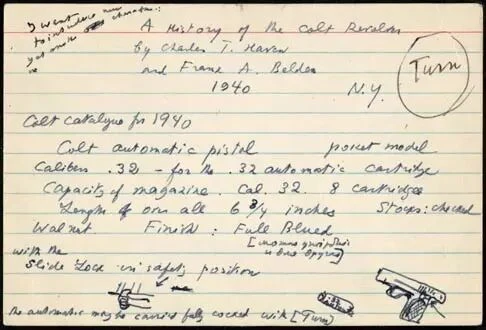 I want
to introduce new character:
yet another
A History of the Colt Revolver
by Charles T. Haven
and Frank A. Belden
1940 N.Y.
Turn
Colt catalogue for 1940
Colt automatic pistol pocket model
Calibers .32 - for the .32 automatic cartridge
Capacity of magazine. Cal. 32. 8 cartridges
Length over all 6 3/4 inches Stocks: checked
Walnut Finish: Full Blued
with the
slide lock in safety position
the automatic may be carried fully cocked with [Turn]